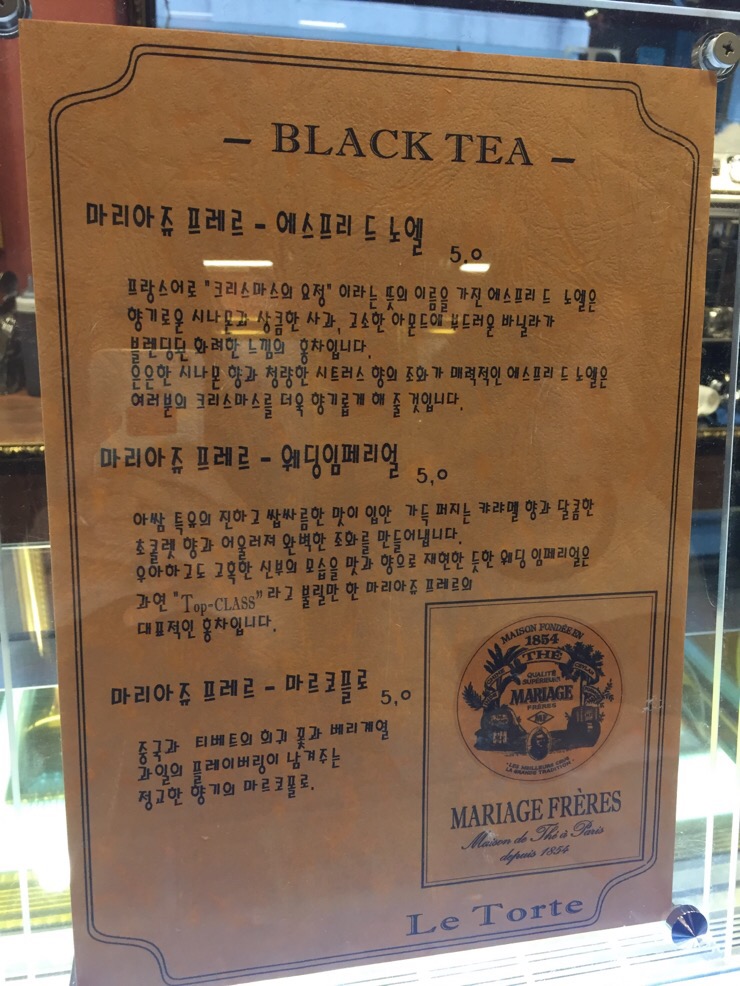 – BLACK TEA –
마리아쥬 프레르 - 에스프리 드 노엘 5.0
프랑스어로 "크리스마스의 요정" 이라는 뜻의 이름을 가진 에스프리 드 노엘은
향기로운 시나몬과 상큼한 사과, 고소한 아몬드에 부드러운 바닐라가
블렌딩된 화려한 느낌의 홍차입니다.
은은한 시나몬 향과 청량한 시트러스 향의 조화가 매력적인 에스프리 드 노엘은
여러분의 크리스마스를 더욱 향기롭게 해 줄 것입니다.
마리아쥬 프레르 - 웨딩임페리얼 5,0
아쌈 특유의 진하고 쌉싸름한 맛이 입안 가득 퍼지는 캬라멜 향과 달콤한
초콜렛 향과 어울러져 완벽한 조화를 만들어냅니다.
우아하고도 고혹한 신부의 모습을 맛과 향으로 재현한 듯한 웨딩 임페리얼은
과연 "Top-CLASS" 라고 불릴만 한 마리아쥬 프레르의
대표적인 홍차입니다.
마리아쥬 프레르 - 마르코플로 5,0
중국과 티베트의 희귀 꽃과 베리계열
과일의 플레이버링이 남겨주는
정고한 향기의 마르코폴로.
MAISON FONDÉE EN
1854
THÉ
QUALITÉ
SUPÉRIEURE
MARIAGE
FRÈRES
MF
"LES MEILLEURS CRUS
LA GRANDE TRADITION"
MARIAGE FRÈRES
Maison de Thé à Paris
depuis 1854
Le Torte